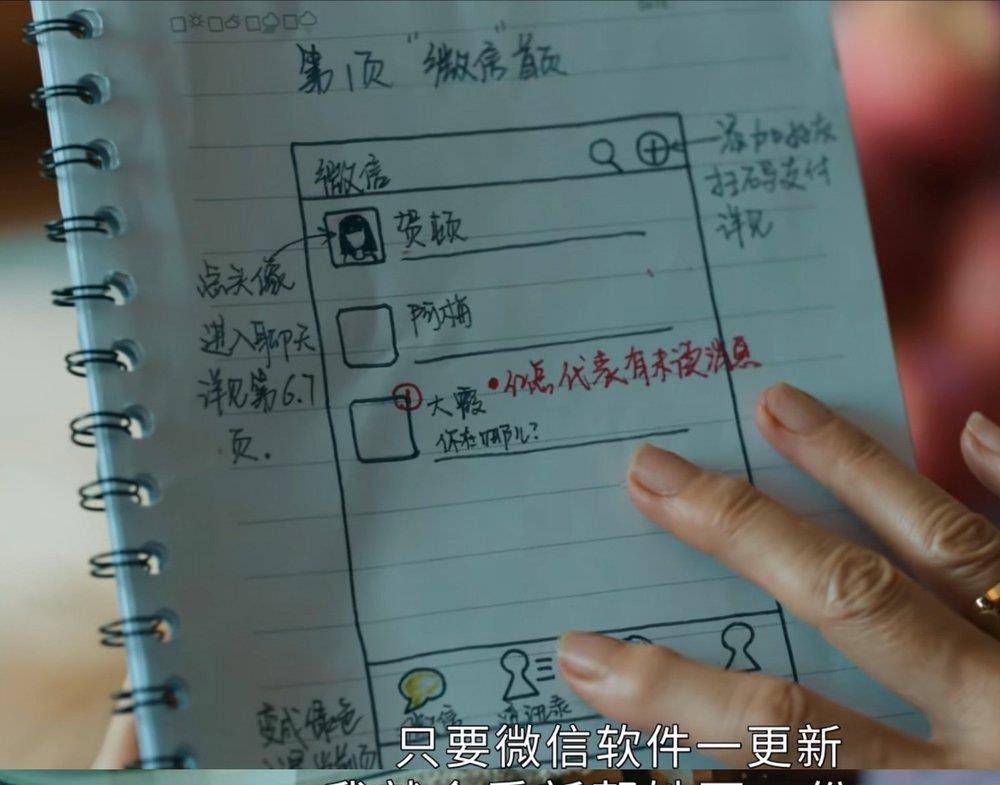 第1页 "微信"首页
微信
添加好友
扫码支付
详见
贺顿
点头像
进入聊天
详见第6.7
页.
阿梅
大霞
•红点代表有未读消息
你在哪儿?
微信
通讯录
变成绿色
只要微信软件一更新